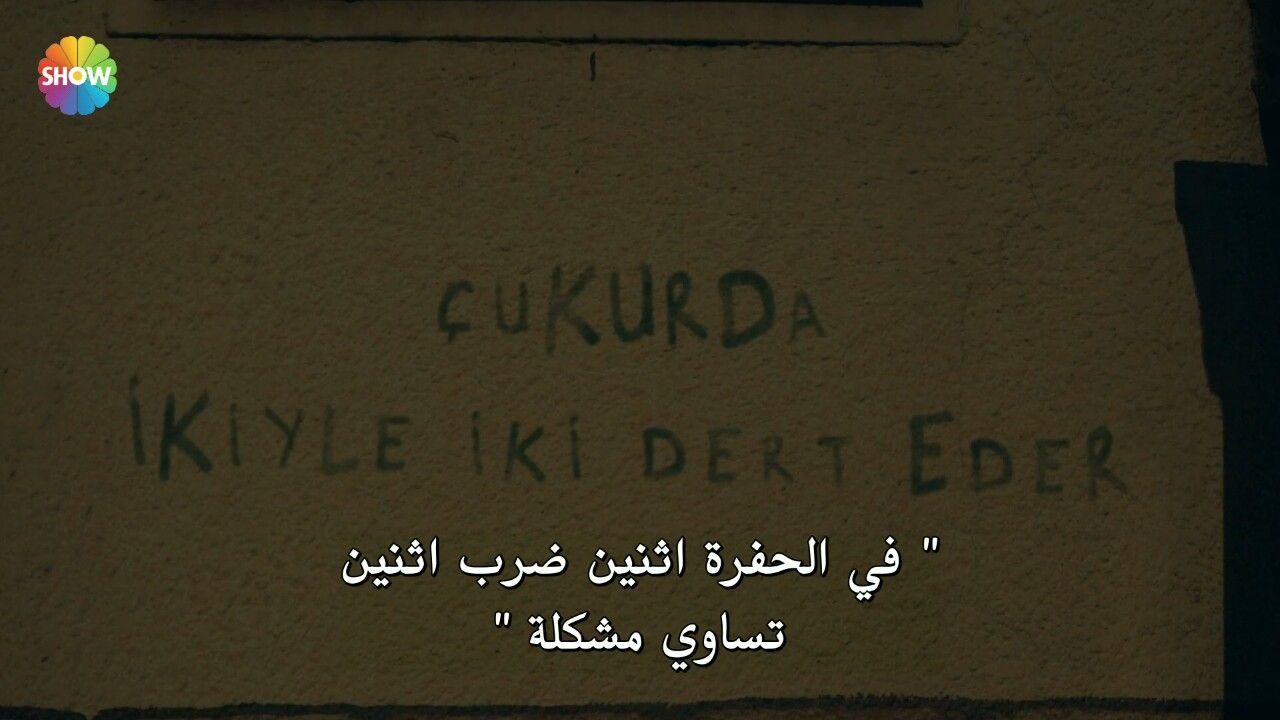 SHOW
ÇUKURDA
İKİYLE İKİ DERT EDER
" في الحفرة اثنين ضرب اثنين
تساوي مشكلة "